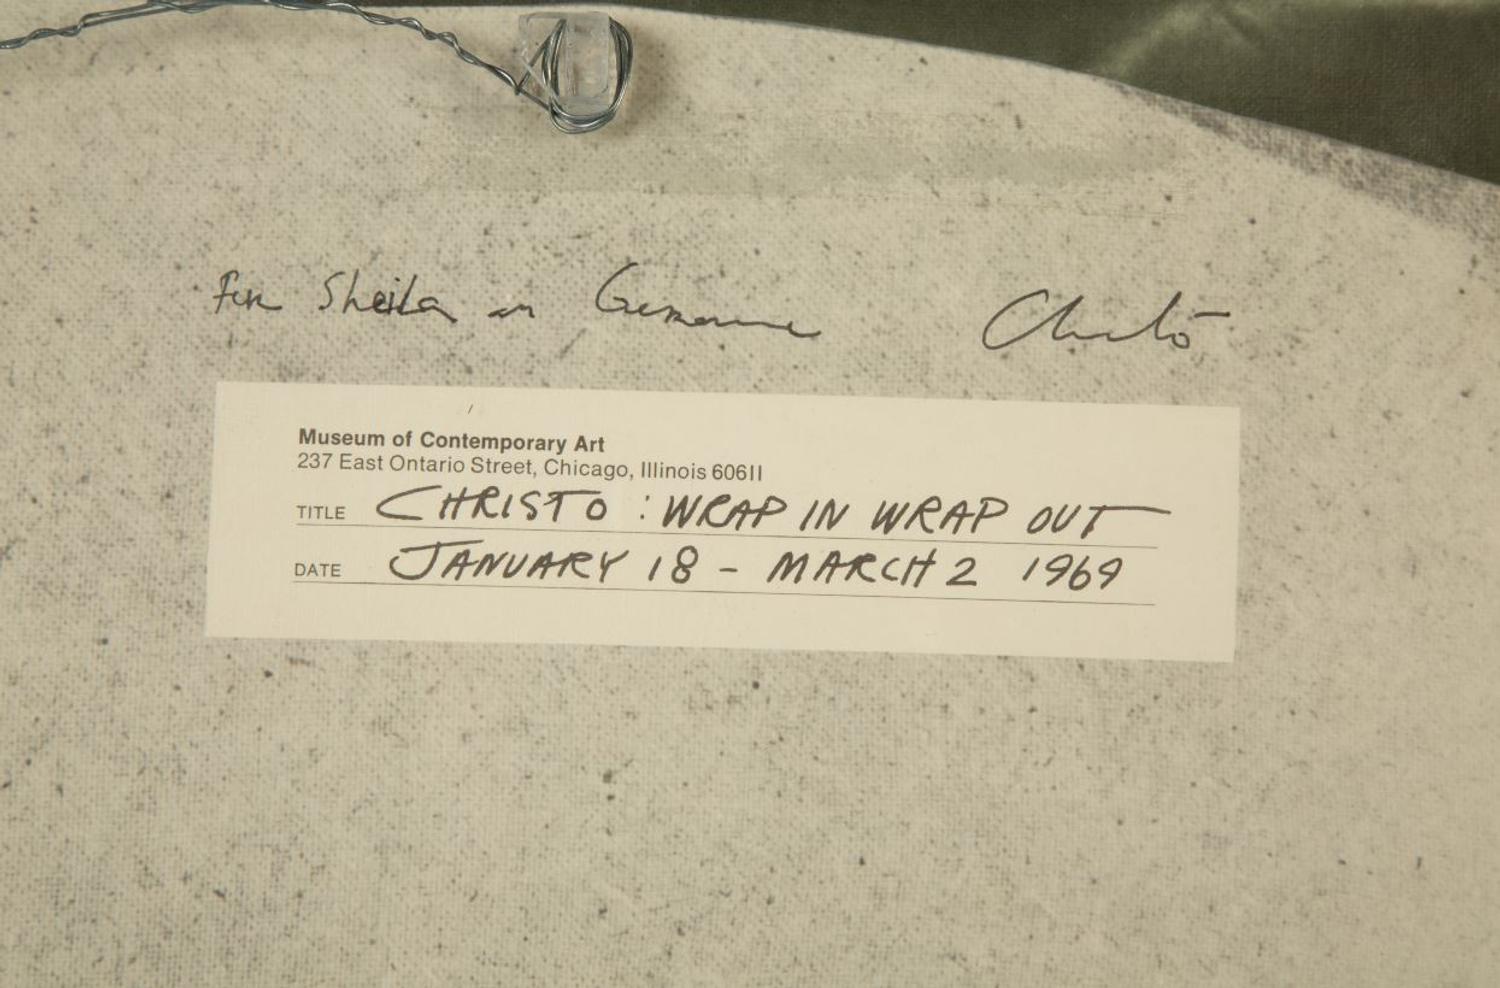 for Sheila Christo
Museum of Contemporary Art
237 East Ontario Street, Chicago, Illinois 60611
TITLE CHRISTO : WRAP IN WRAP OUT
DATE JANUARY 18 - MARCH 2 1969